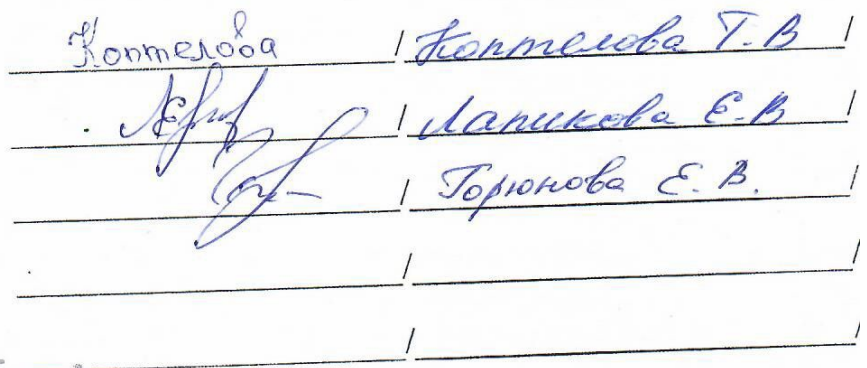 Коптелова / Коптелова Т.В /
/ Лапикова Е.В /
/ Горюнова Е.В. /
/ /
/ /